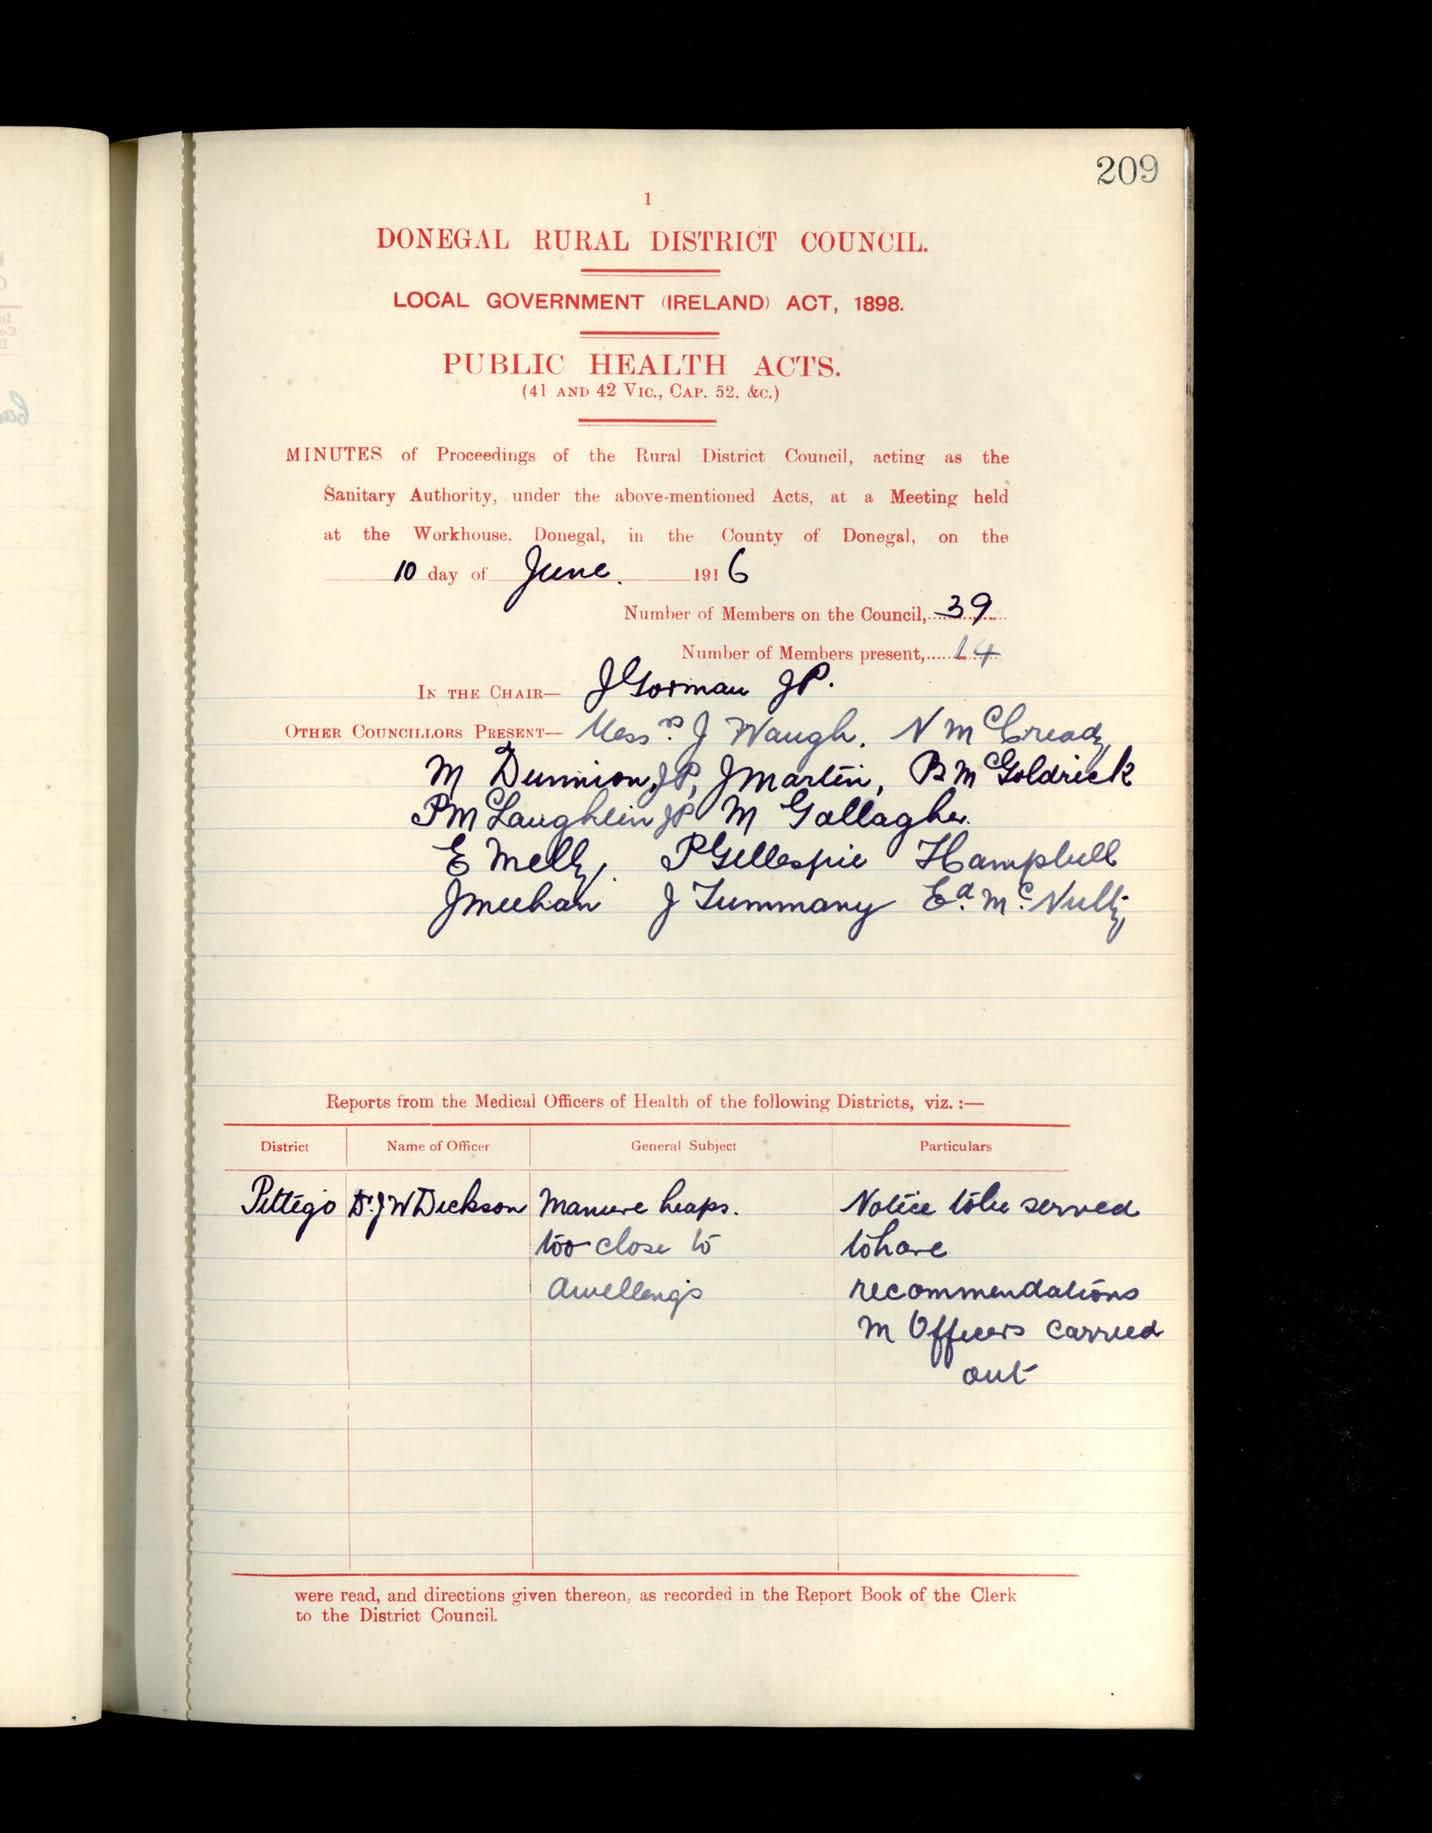 209
1
DONEGAL RURAL DISTRICT COUNCIL.
LOCAL GOVERNMENT (IRELAND) ACT, 1898.
PUBLIC HEALTH ACTS.
(41 AND 42 VIC., CAP. 52, &C.)
MINUTES of Proceedings of the Rural District Council, acting as the
Sanitary Authority, under the above-mentioned Acts, at a Meeting held
at the Workhouse, Donegal, in the County of Donegal, on the
10 day of June. 1916
Number of Members on the Council, 39
Number of Members present, 14
IN THE CHAIR— J Gorman JP.
OTHER COUNCILLORS PRESENT— Messrs. J Waugh. N McCready
M Dunnion, JP, J Martin, B McGoldrick
P McLaughlin JP M Gallagher.
E Melly. P Gillespie H Campbell
J Meehan J Tummany Ed. Mc. Nulty
Reports from the Medical Officers of Health of the following Districts, viz. :—
District Name of Officer General Subject Particulars
Pettigo Dr. J W Dickson Manure heaps. Notice to be served
too close to to have
dwellings recommendations
M Officers carried
out
were read, and directions given thereon, as recorded in the Report Book of the Clerk
to the District Council.